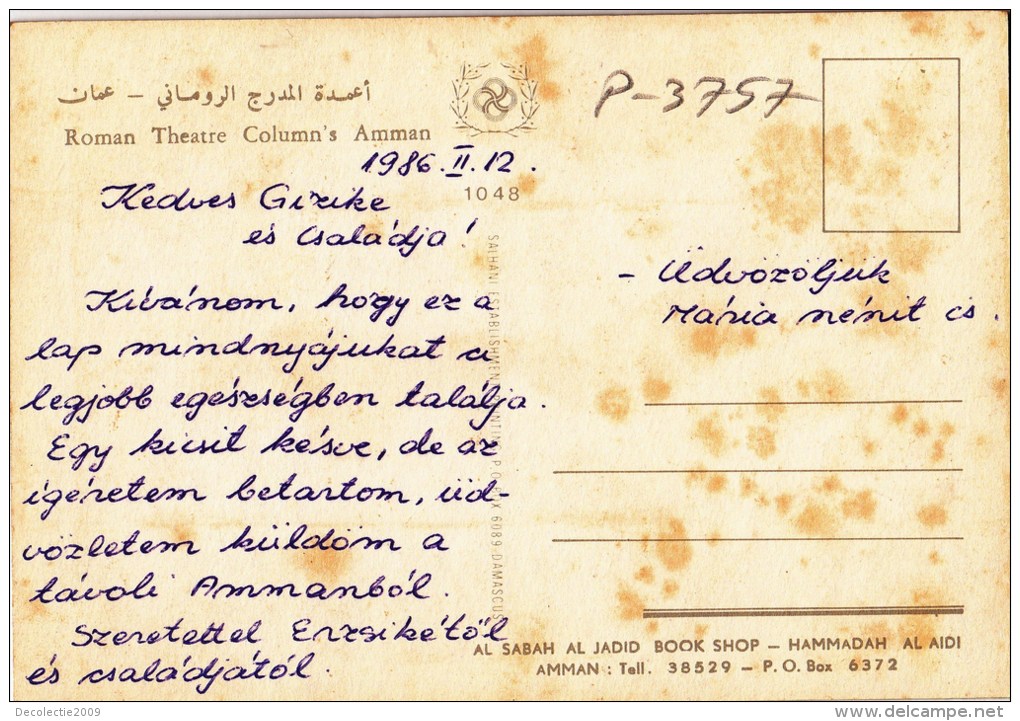 أعمدة المدرج الروماني – عمان
Roman Theatre Column's Amman
P-3757
1986.II.12.
1048
Kedves Gizike
és Családja!
Kívánom, hogy ez a
lap mindnyájukat a
legjobb egészségben találja.
Egy kicsit késve, de az
ígéretem betartom, üd-
vözletem küldöm a
távoli Ammanból.
Szeretettel Erzsikétől
és családjától.
- Üdvözöljük
Mária nénit is.
SAIHANI ESTABLISHMENT PRINTING P.O. BOX 6089 DAMASCUS
AL SABAH AL JADID BOOK SHOP – HAMMADAH AL AIDI
AMMAN : Tell. 38529 – P.O. Box 6372
Decolectie2009
www.delcampe.net